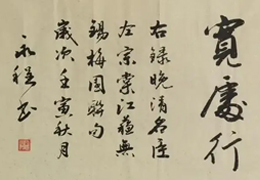 寛處行
右録晚清名臣
左宗棠江蘇無
錫梅園聯句
歲次壬寅秋月
永程书